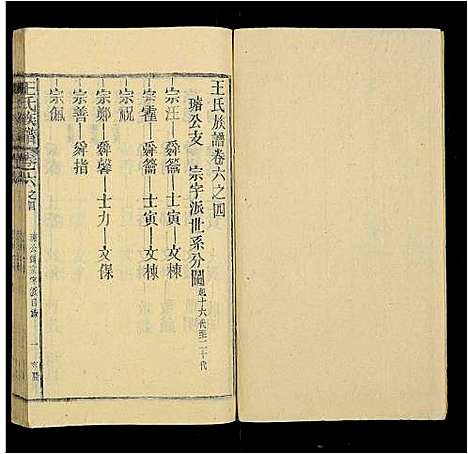 王氏族譜卷六之四
璿公支 宗字派世系分圖起十六代至二十代
宗汪—舜篛—士寅—文棟
宗霍—舜篛—士寅—文棟
宗祝
宗鄭—舜馨—士力—文保
宗善—舜指
宗佩
王氏族譜 卷六之四